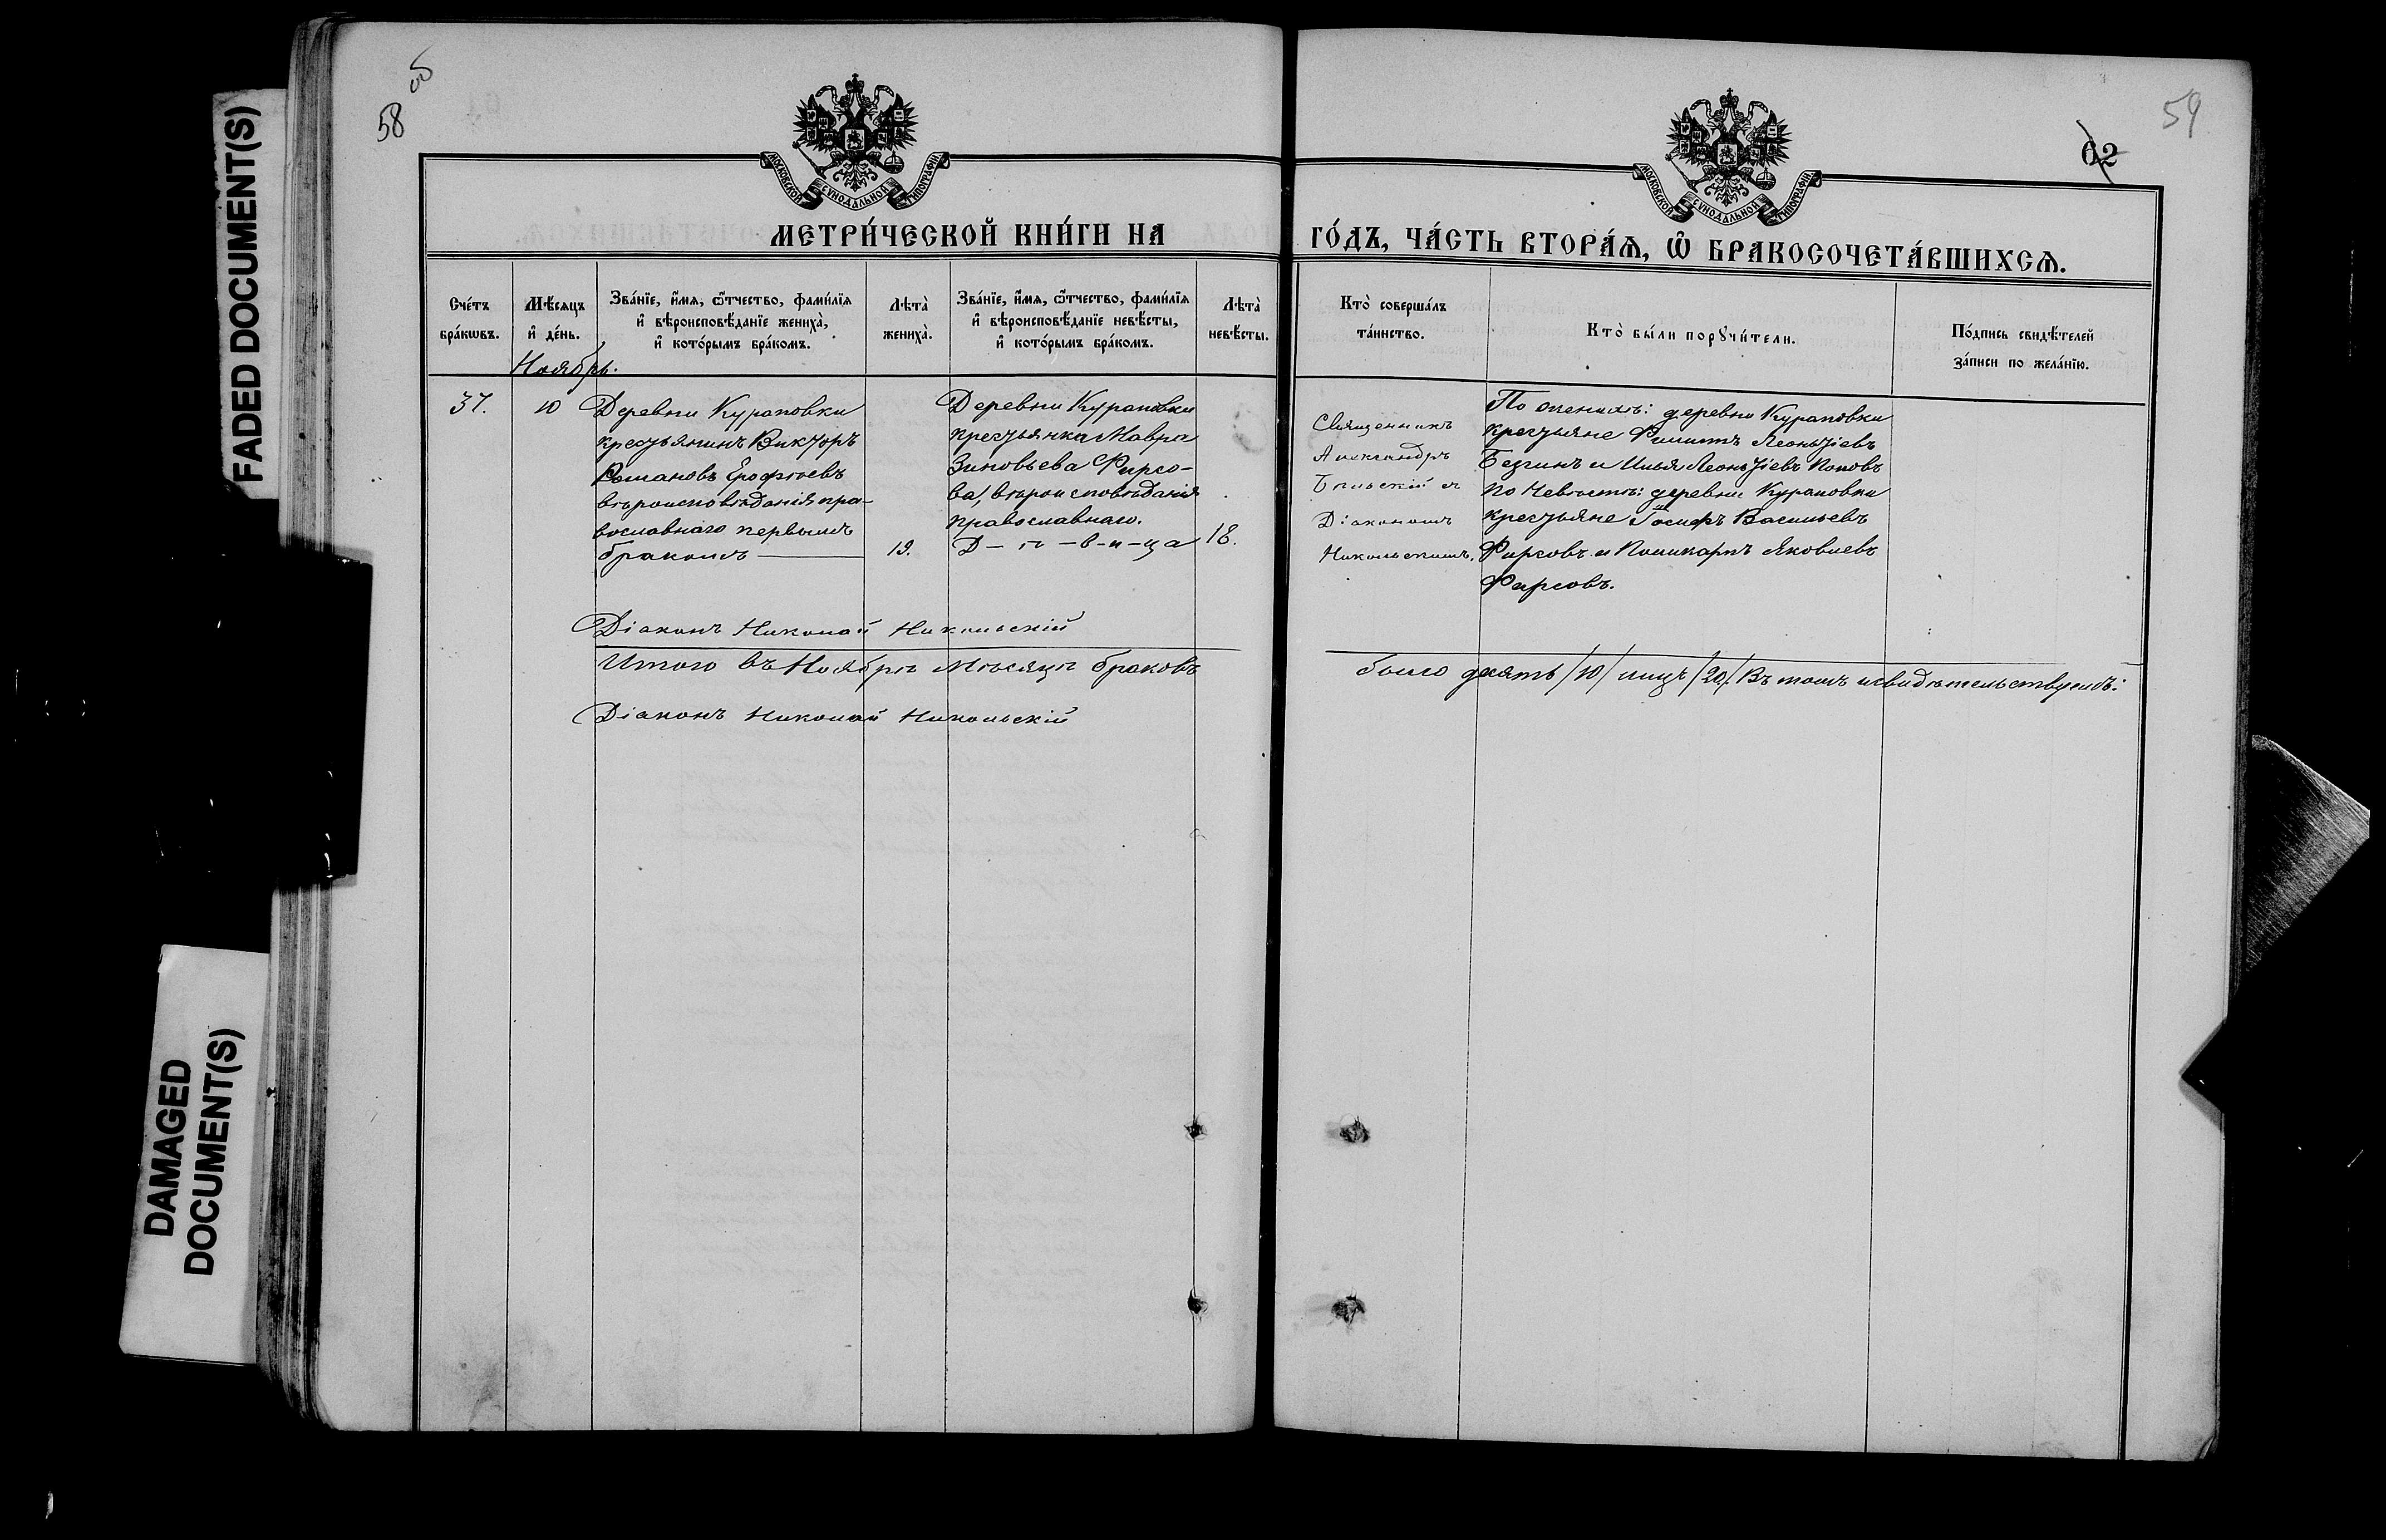 FADED DOCUMENT(S)
DAMAGED
DOCUMENT(S)
58 об
МОСКОВСКОЙ СѴНОДАЛЬНОЙ ТИПОГРАФІИ
МЕТРИ́ЧЕСКОЙ КНИ́ГИ НА
Сче́тъ
бра́кѡвъ.
Мѣ́сяцъ
и҆ де́нь.
Зва́нїе, и҆́мя, ѻ҆́тчество, фами́лїя
и҆ вѣроисповѣ́данїе жениха̀,
и҆ кото́рымъ бра́комъ.
Лѣта̀
жениха̀.
Зва́нїе, и҆́мя, ѻ҆́тчество, фами́лїя
и҆ вѣроисповѣ́данїе невѣ́сты,
и҆ кото́рымъ бра́комъ.
Лѣта̀
невѣ́сты.
Ноябрь.
37.
10
Деревни Кураповки
крестьянинъ Викторъ
Романовъ Ерофѣевъ
вѣроисповѣданія пра-
вославнаго первымъ
бракомъ
19.
Деревни Кураповки
крестьянка Мавра
Зиновьева Фирсо-
ва, вѣроисповѣданія
православнаго.
Д-ѣ-в-и-ца
18.
Діаконъ Николай Никольскій
Итого въ Ноябрѣ Мѣсяцѣ браковъ
Діаконъ Николай Никольскій
59
62
МОСКОВСКОЙ СѴНОДАЛЬНОЙ ТИПОГРАФІИ
ГО́ДЪ, ЧА́СТЬ ВТОРА́Ѧ, Ѽ БРАКОСОЧЕТА́ВШИХСѦ.
Кто̀ соверша́лъ
та́инство.
Кто̀ бы́ли порꙋчи́тели.
По́дпись свидѣ́телей
за́писи по жела́нїю.
Священникъ
Александръ
Бѣльскій съ
Діакономъ
Никольскимъ.
По женихѣ: деревни Кураповки
крестьяне Филиппъ Леонтіевъ
Безгинъ и Илья Леонтіевъ Поповъ
по Невѣстѣ: деревни Кураповки
крестьяне Іосифъ Васильевъ
Фирсовъ и Поликарпъ Яковлевъ
Фирсовъ.
было десять /10/ лицъ /20/. Въ томъ и свидѣтельствуемъ: